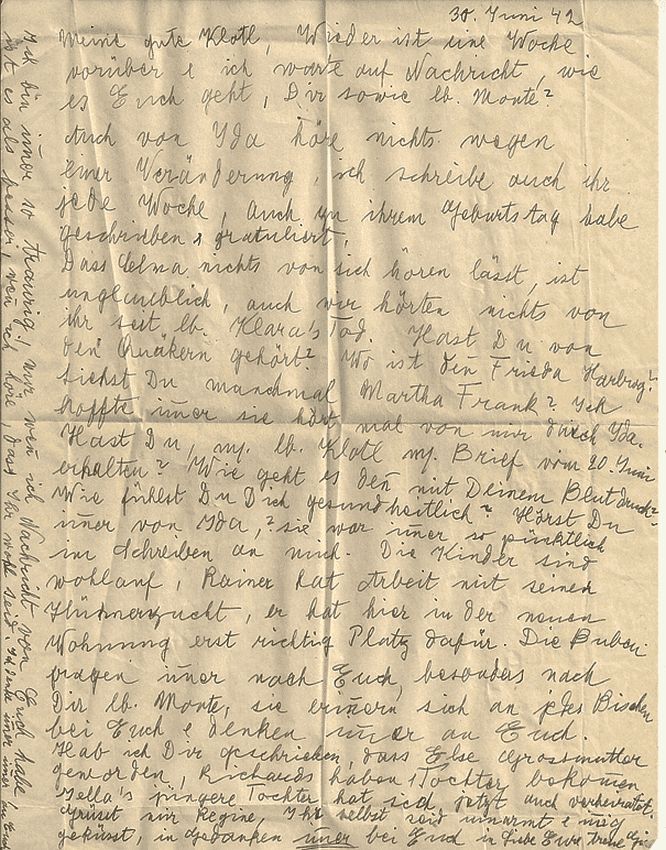 30. Juni 42
Meine gute Klotl, Wieder ist eine Woche
vorüber & ich warte auf Nachricht, wie
es Euch geht, Dir sowie lb. Monte?
Auch von Ida höre nichts wegen
einer Veränderung, ich schreibe auch ihr
jede Woche, auch zu ihrem Geburtstag habe
geschrieben & gratuliert.
Dass Selma nichts von sich hören lässt, ist
unglaublich, auch wir hörten nichts von
ihr seit lb. Klara's Tod. Hast Du von
den Quäkern gehört? Wo ist den Frieda Harburg?
Siehst Du manchmal Martha Frank? Ich
hoffte im̄er sie hört mal von mir durch Ida.
Hast Du, my. lb. Klotl my. Brief vom 20. Juni
erhalten? Wie geht es den̄ mit Deinem Blutdruck?
Wie fühlst Du Dich gesundheitlich? Hörst Du
im̄er von Ida,? sie war im̄er so pünktlich
im Schreiben an mich. Die Kinder sind
wohlauf, Rainer hat Arbeit mit seiner
Hühnerzucht, er hat hier in der neuen
Wohnung erst richtig Platz dafür. Die Buben
fragen im̄er nach Euch, besonders nach
Dir lb. Monte, sie erin̄ern sich an jedes Bischen
bei Euch & denken im̄er an Euch.
Hab ich Dir geschrieben, dass Else Grossmutter
geworden, Richards haben 1 Tochter bekom̄en,
Jella's jüngere Tochter hat sich jetzt auch verheiratet.
Grüsst mir Regine, Ihr selbst seid umarmt & innig
geküsst, in Gedanken im̄er bei Euch in Liebe Eure treue
Ich bin im̄er so traurig! nur wen̄ ich Nachricht von Euch habe
ist es als besser, wen̄ ich höre, dass Ihr wohl seid. Ich denke im̄er im̄er an Euch